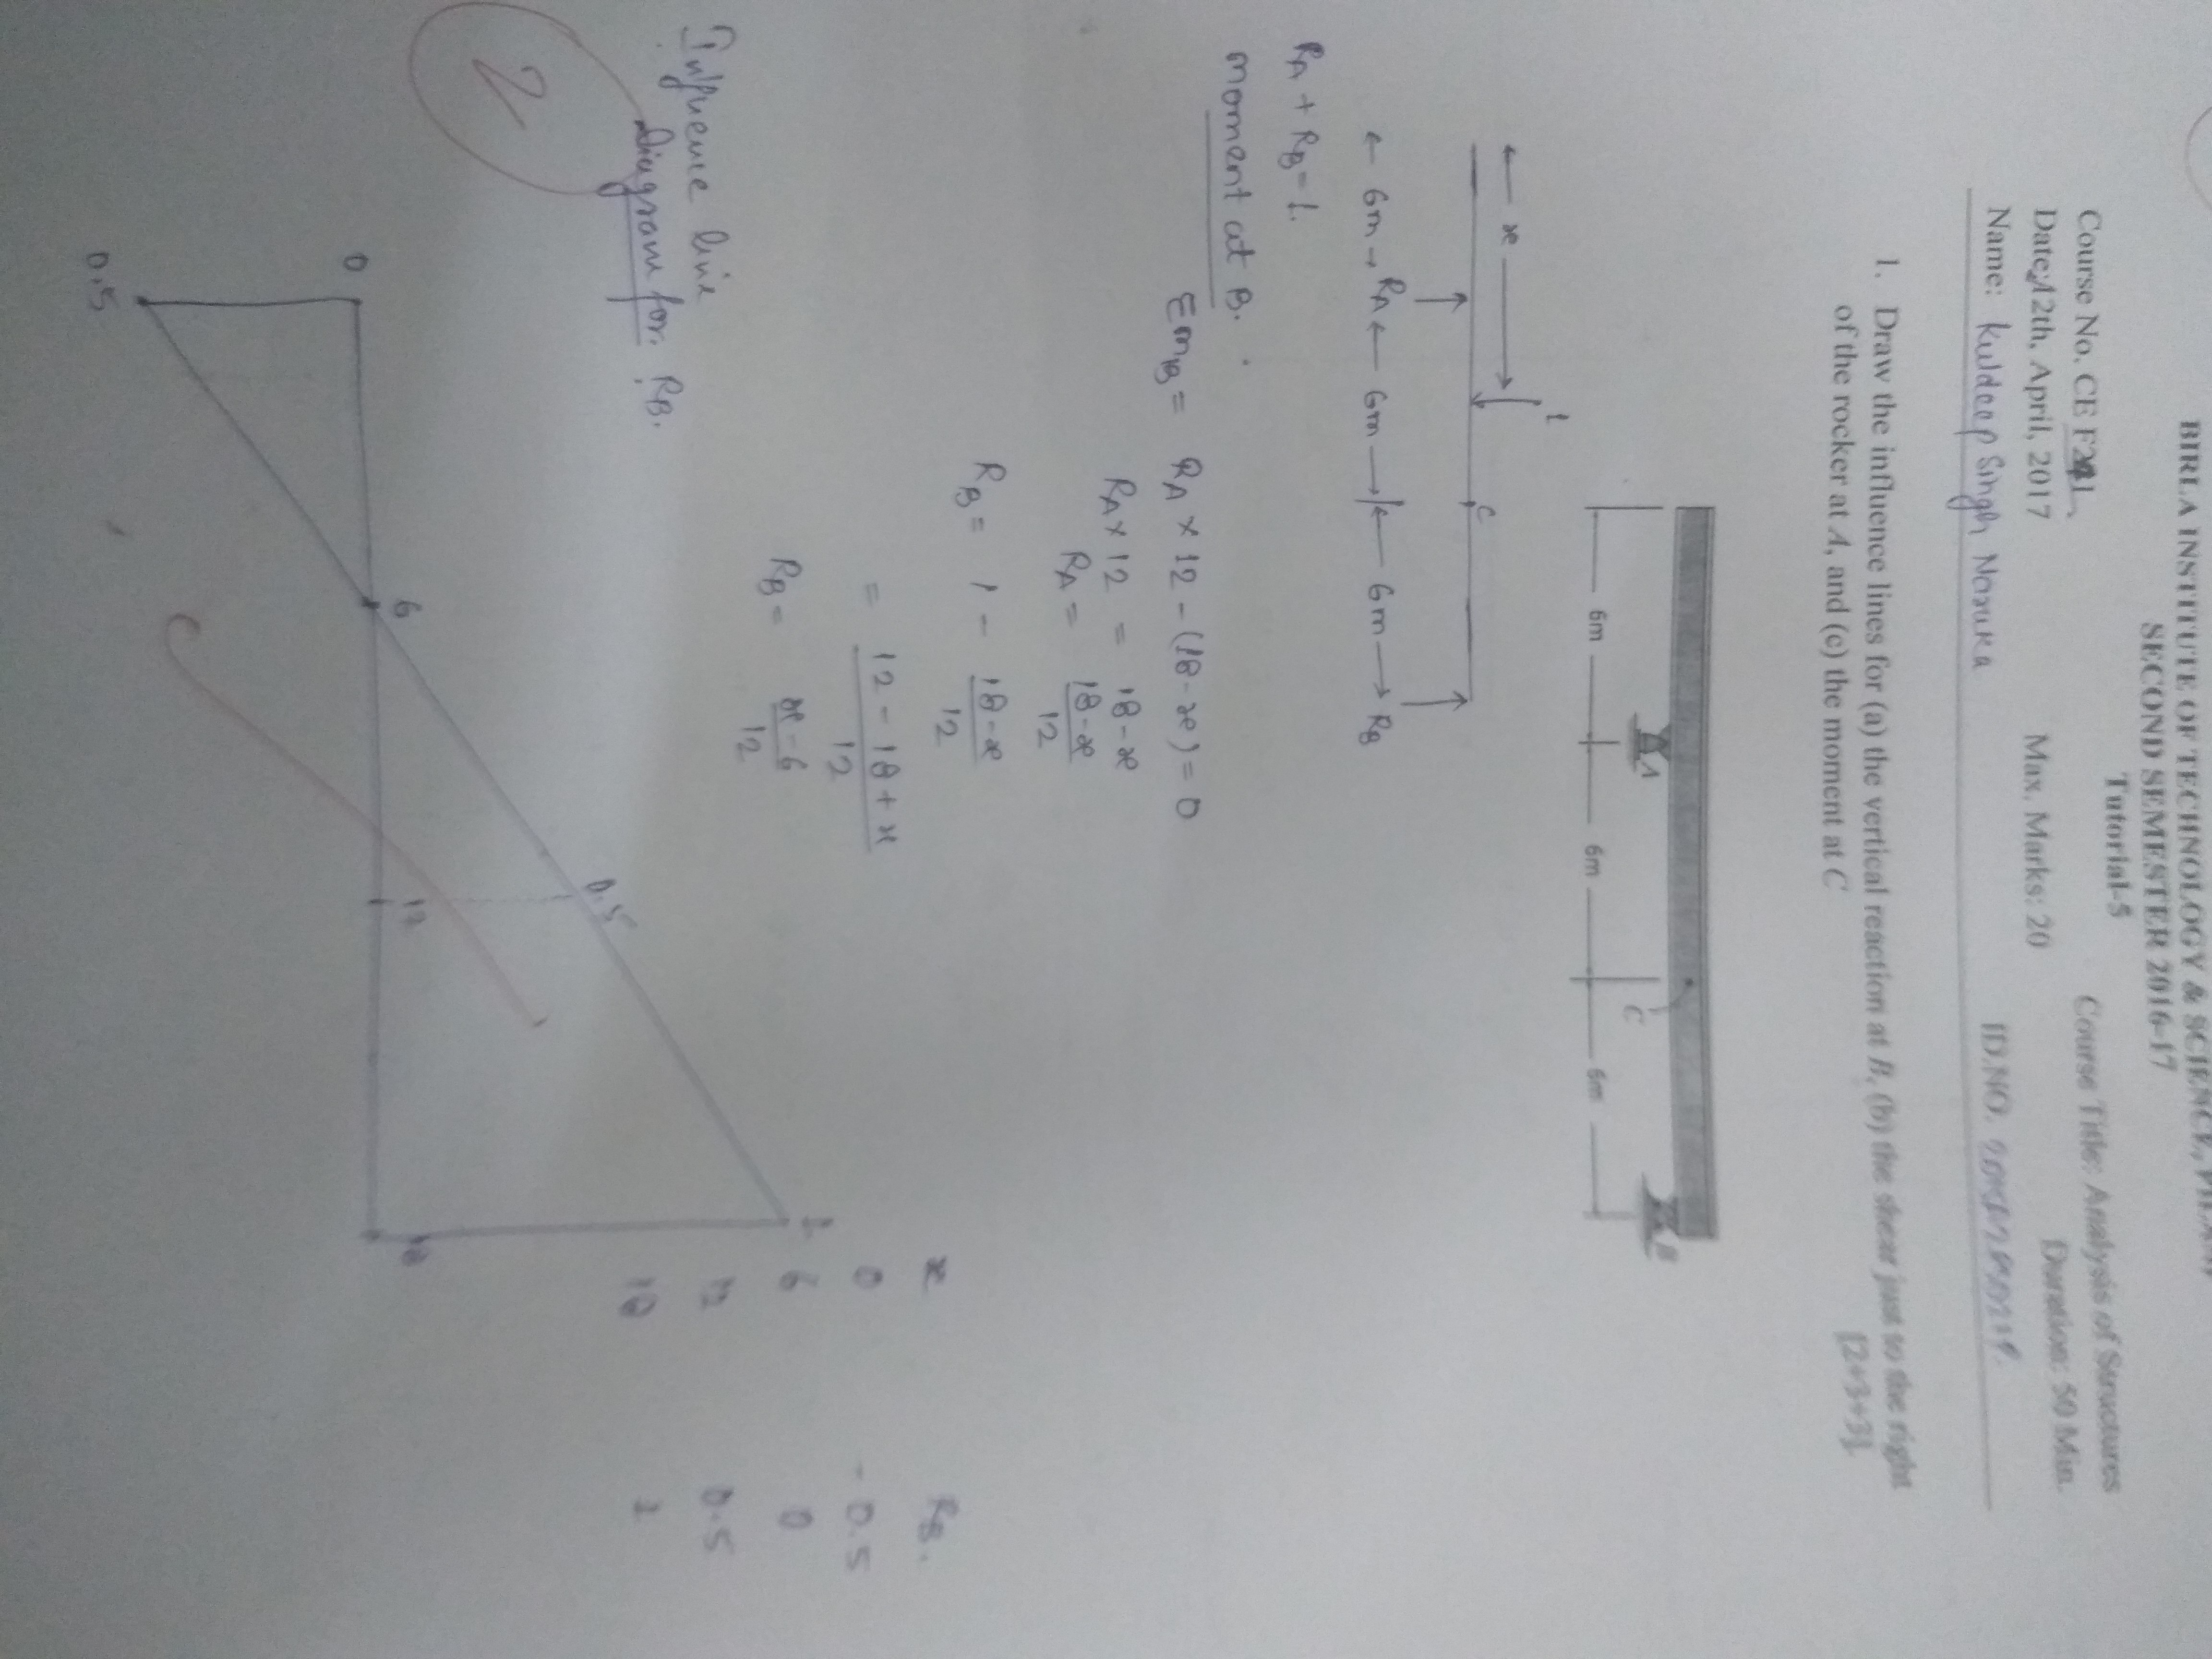 BIRLA INSTITUTE OF TECHNOLOGY & SCIENCE, PILANI
SECOND SEMESTER 2016-17
Tutorial-5
Course No. CE F241 Course Title: Analysis of Structures
Date: 12th, April, 2017 Max. Marks: 20 Duration: 50 Min.
Name: Kuldeep Singh Naruka ID.NO.
1. Draw the influence lines for (a) the vertical reaction at B, (b) the shear just to the right
of the rocker at A, and (c) the moment at C [2+3+3]
A C B
6m 6m 6m
1
← x →
C
← 6m → RA ← 6m → ← 6m → RB
RA + RB = 1.
moment at B.
ΣmB = RA × 12 - (18 - x) = 0
RA × 12 = 18 - x
RA = 18 - x / 12
RB = 1 - 18 - x / 12
= 12 - 18 + x / 12
RB = x - 6 / 12
x RB.
0 -0.5
6 0
12 0.5
18 1
Influence line
Diagram for RB.
2
1
0.5
0 6 12 18
0.5